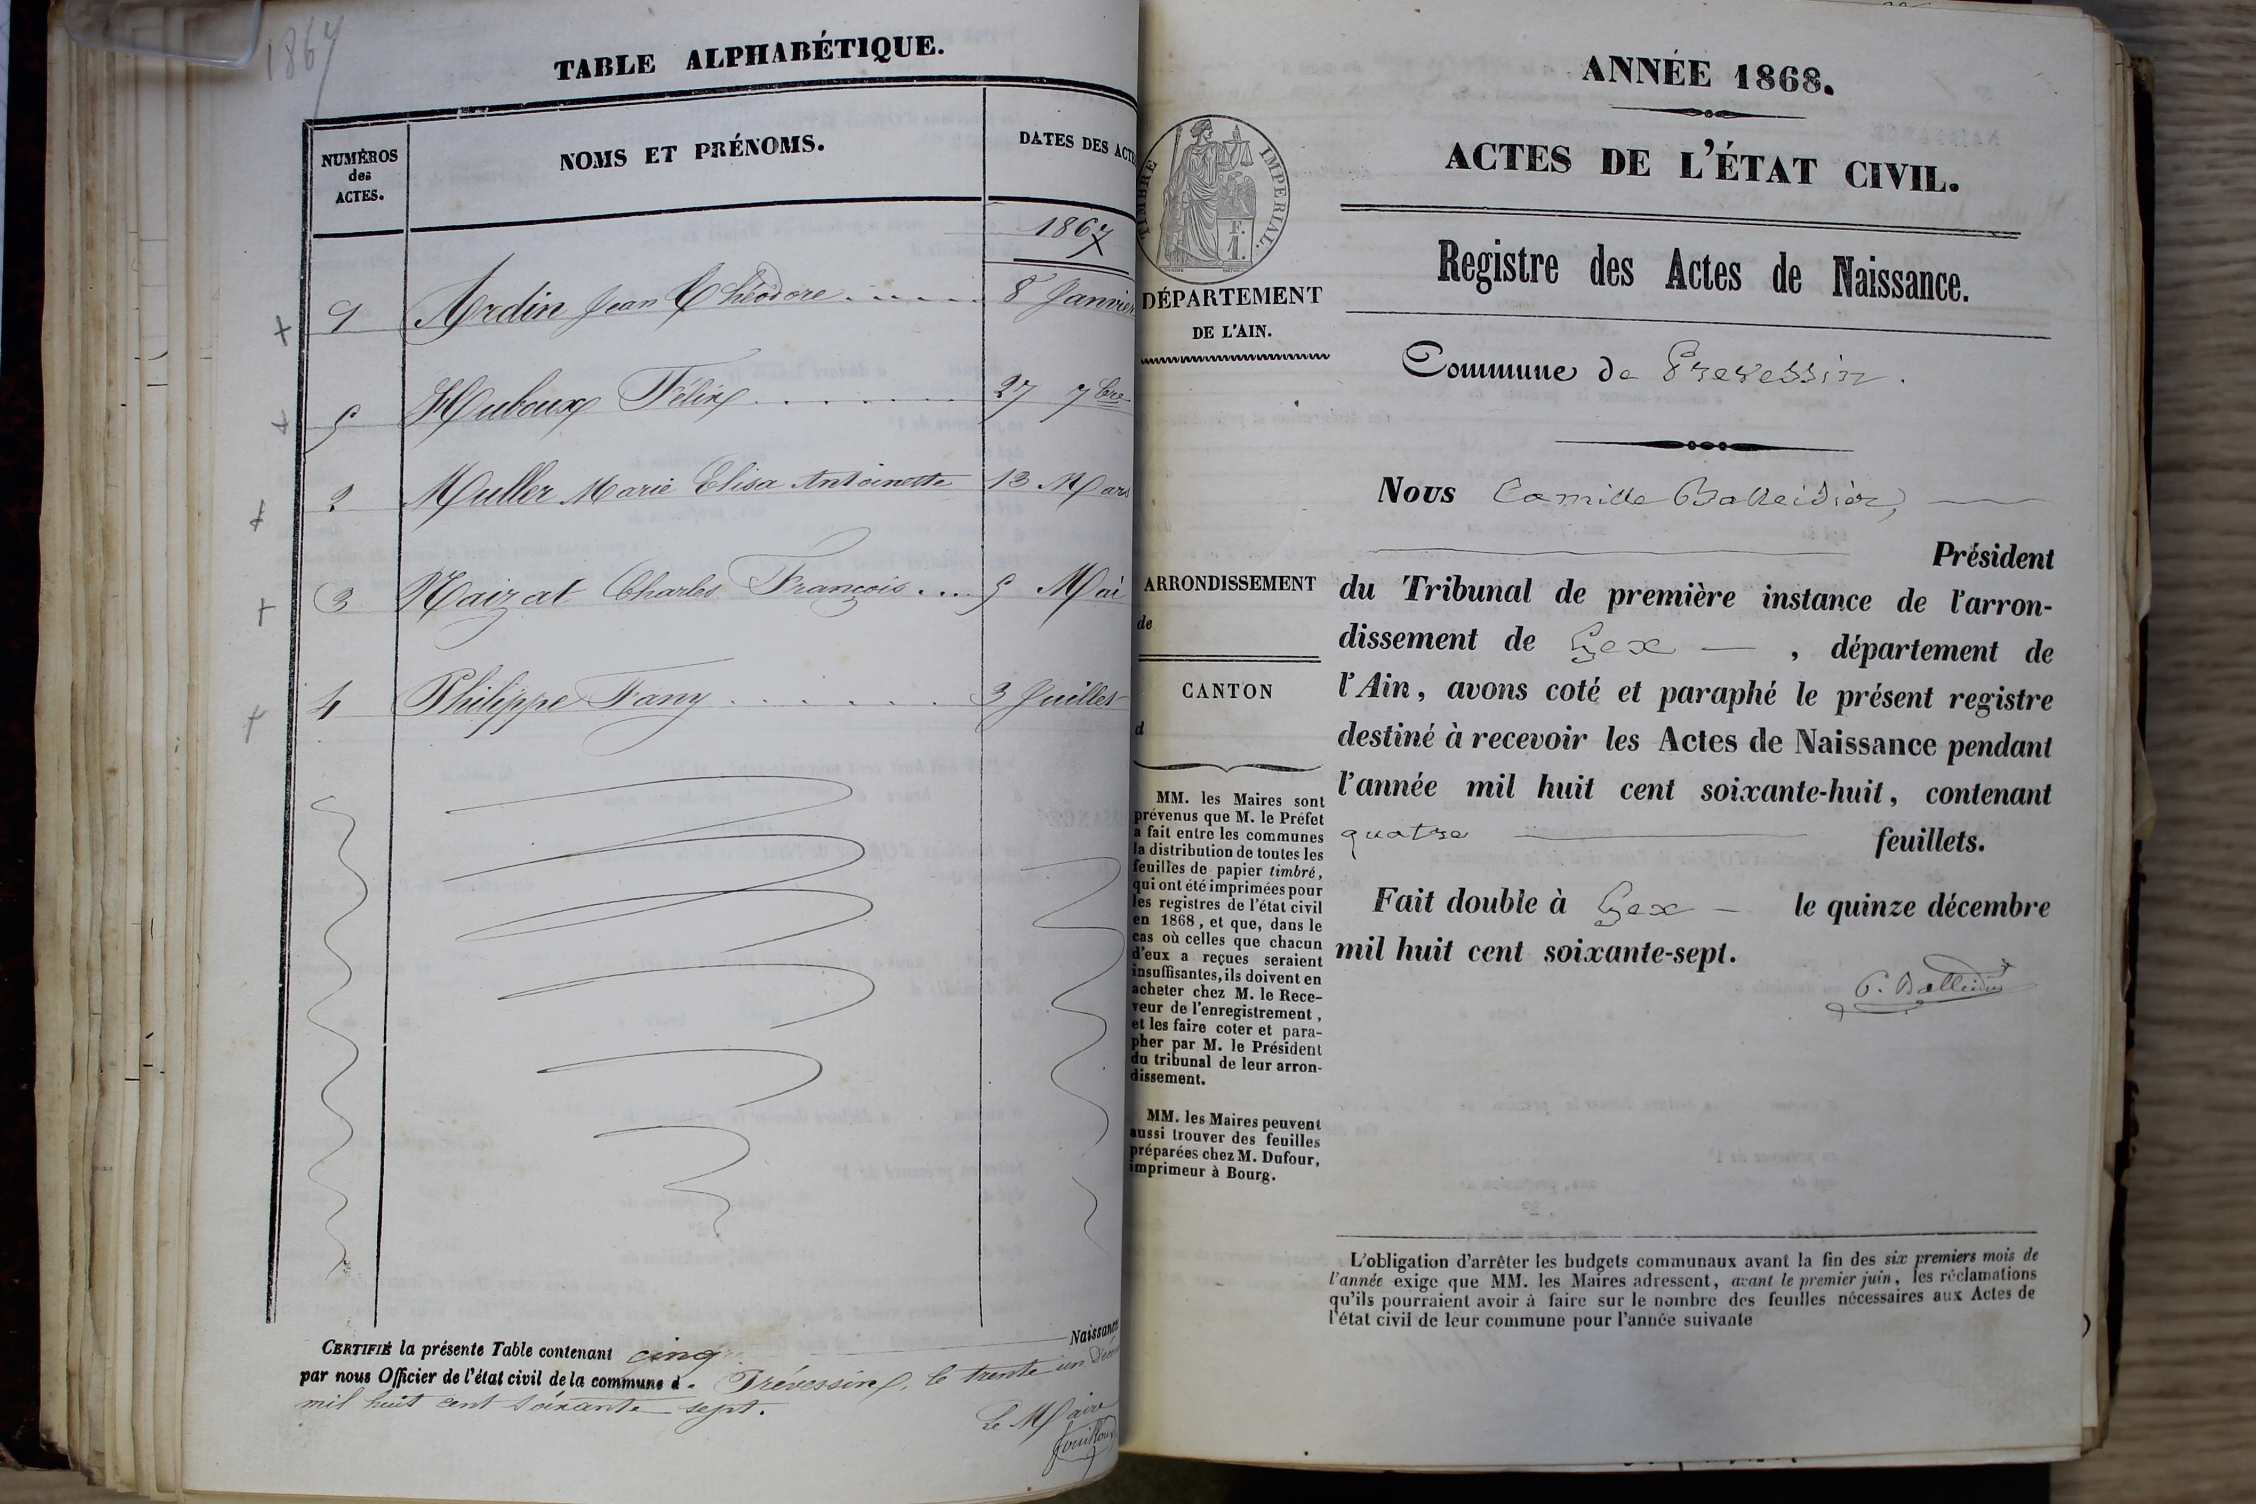 1867
TABLE ALPHABÉTIQUE.
NUMÉROS
des
ACTES.
NOMS ET PRÉNOMS.
DATES DES ACTE
1867
1 Ardin Jean Théodore 8 Janvier
5 Huboux Félix 27 7bre
2 Muller Marie Elisa Antoinette 13 Mars
3 Naizat Charles François 5 Mai
4 Philippe Fany 3 Juillet
CERTIFIÉ la présente Table contenant cinq Naissances
par nous Officier de l'état civil de la commune d. Prévessin, le trente un Décem
mil huit cent soixante sept.
Le Maire
ANNÉE 1868.
ACTES DE L'ÉTAT CIVIL.
TIMBRE IMPERIAL.
F.
1.
Registre des Actes de Naissance.
DÉPARTEMENT
DE L'AIN.
Commune de Prevessin.
Nous Camille Balleidier,
Président
ARRONDISSEMENT
de
CANTON
d
du Tribunal de première instance de l'arron-
dissement de Gex — , département de
l'Ain, avons coté et paraphé le présent registre
destiné à recevoir les Actes de Naissance pendant
l'année mil huit cent soixante-huit, contenant
quatre feuillets.
Fait double à Gex — le quinze décembre
mil huit cent soixante-sept.
C. Balleidier
MM. les Maires sont
prévenus que M. le Préfet
a fait entre les communes
la distribution de toutes les
feuilles de papier timbré,
qui ont été imprimées pour
les registres de l'état civil
en 1868, et que, dans le
cas où celles que chacun
d'eux a reçues seraient
insuffisantes, ils doivent en
acheter chez M. le Rece-
veur de l'enregistrement,
et les faire coter et para-
pher par M. le Président
du tribunal de leur arron-
dissement.
MM. les Maires peuvent
aussi trouver des feuilles
préparées chez M. Dufour,
imprimeur à Bourg.
L'obligation d'arrêter les budgets communaux avant la fin des six premiers mois de
l'année exige que MM. les Maires adressent, avant le premier juin, les réclamations
qu'ils pourraient avoir à faire sur le nombre des feuilles nécessaires aux Actes de
l'état civil de leur commune pour l'année suivante